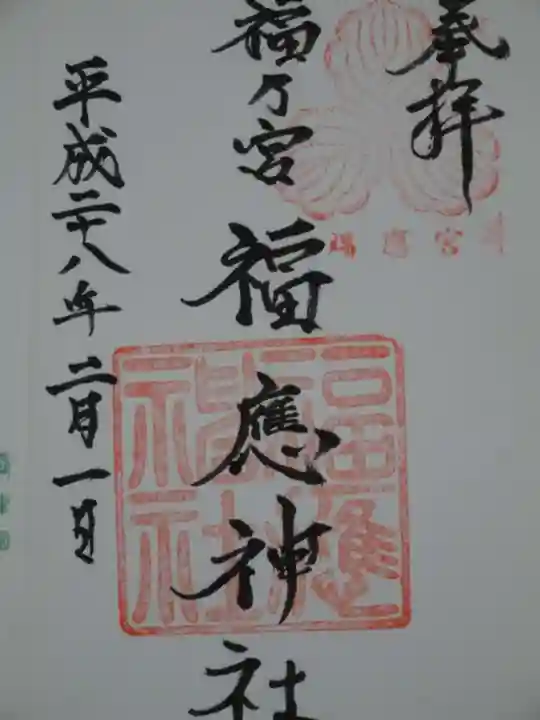 奉拝
福乃宮 福應神社
平成二十八年 二月一日
福應神社